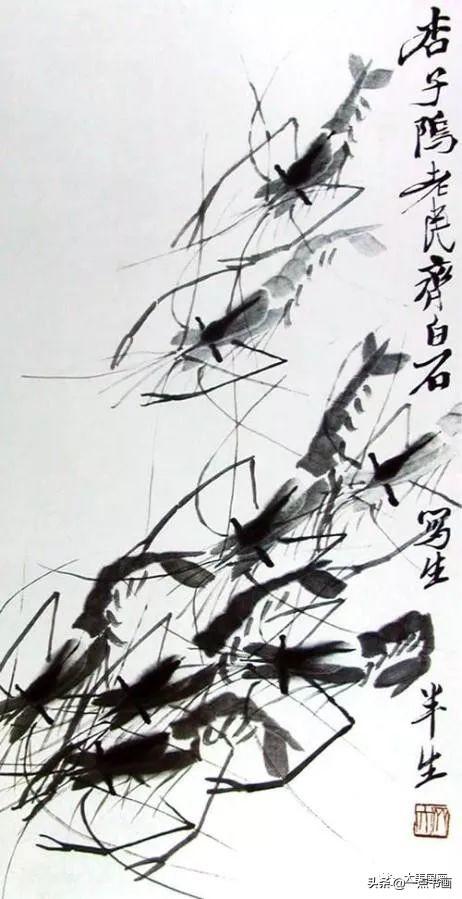 杏子隖老民齊白石
寫生
半生
头条@一点书画